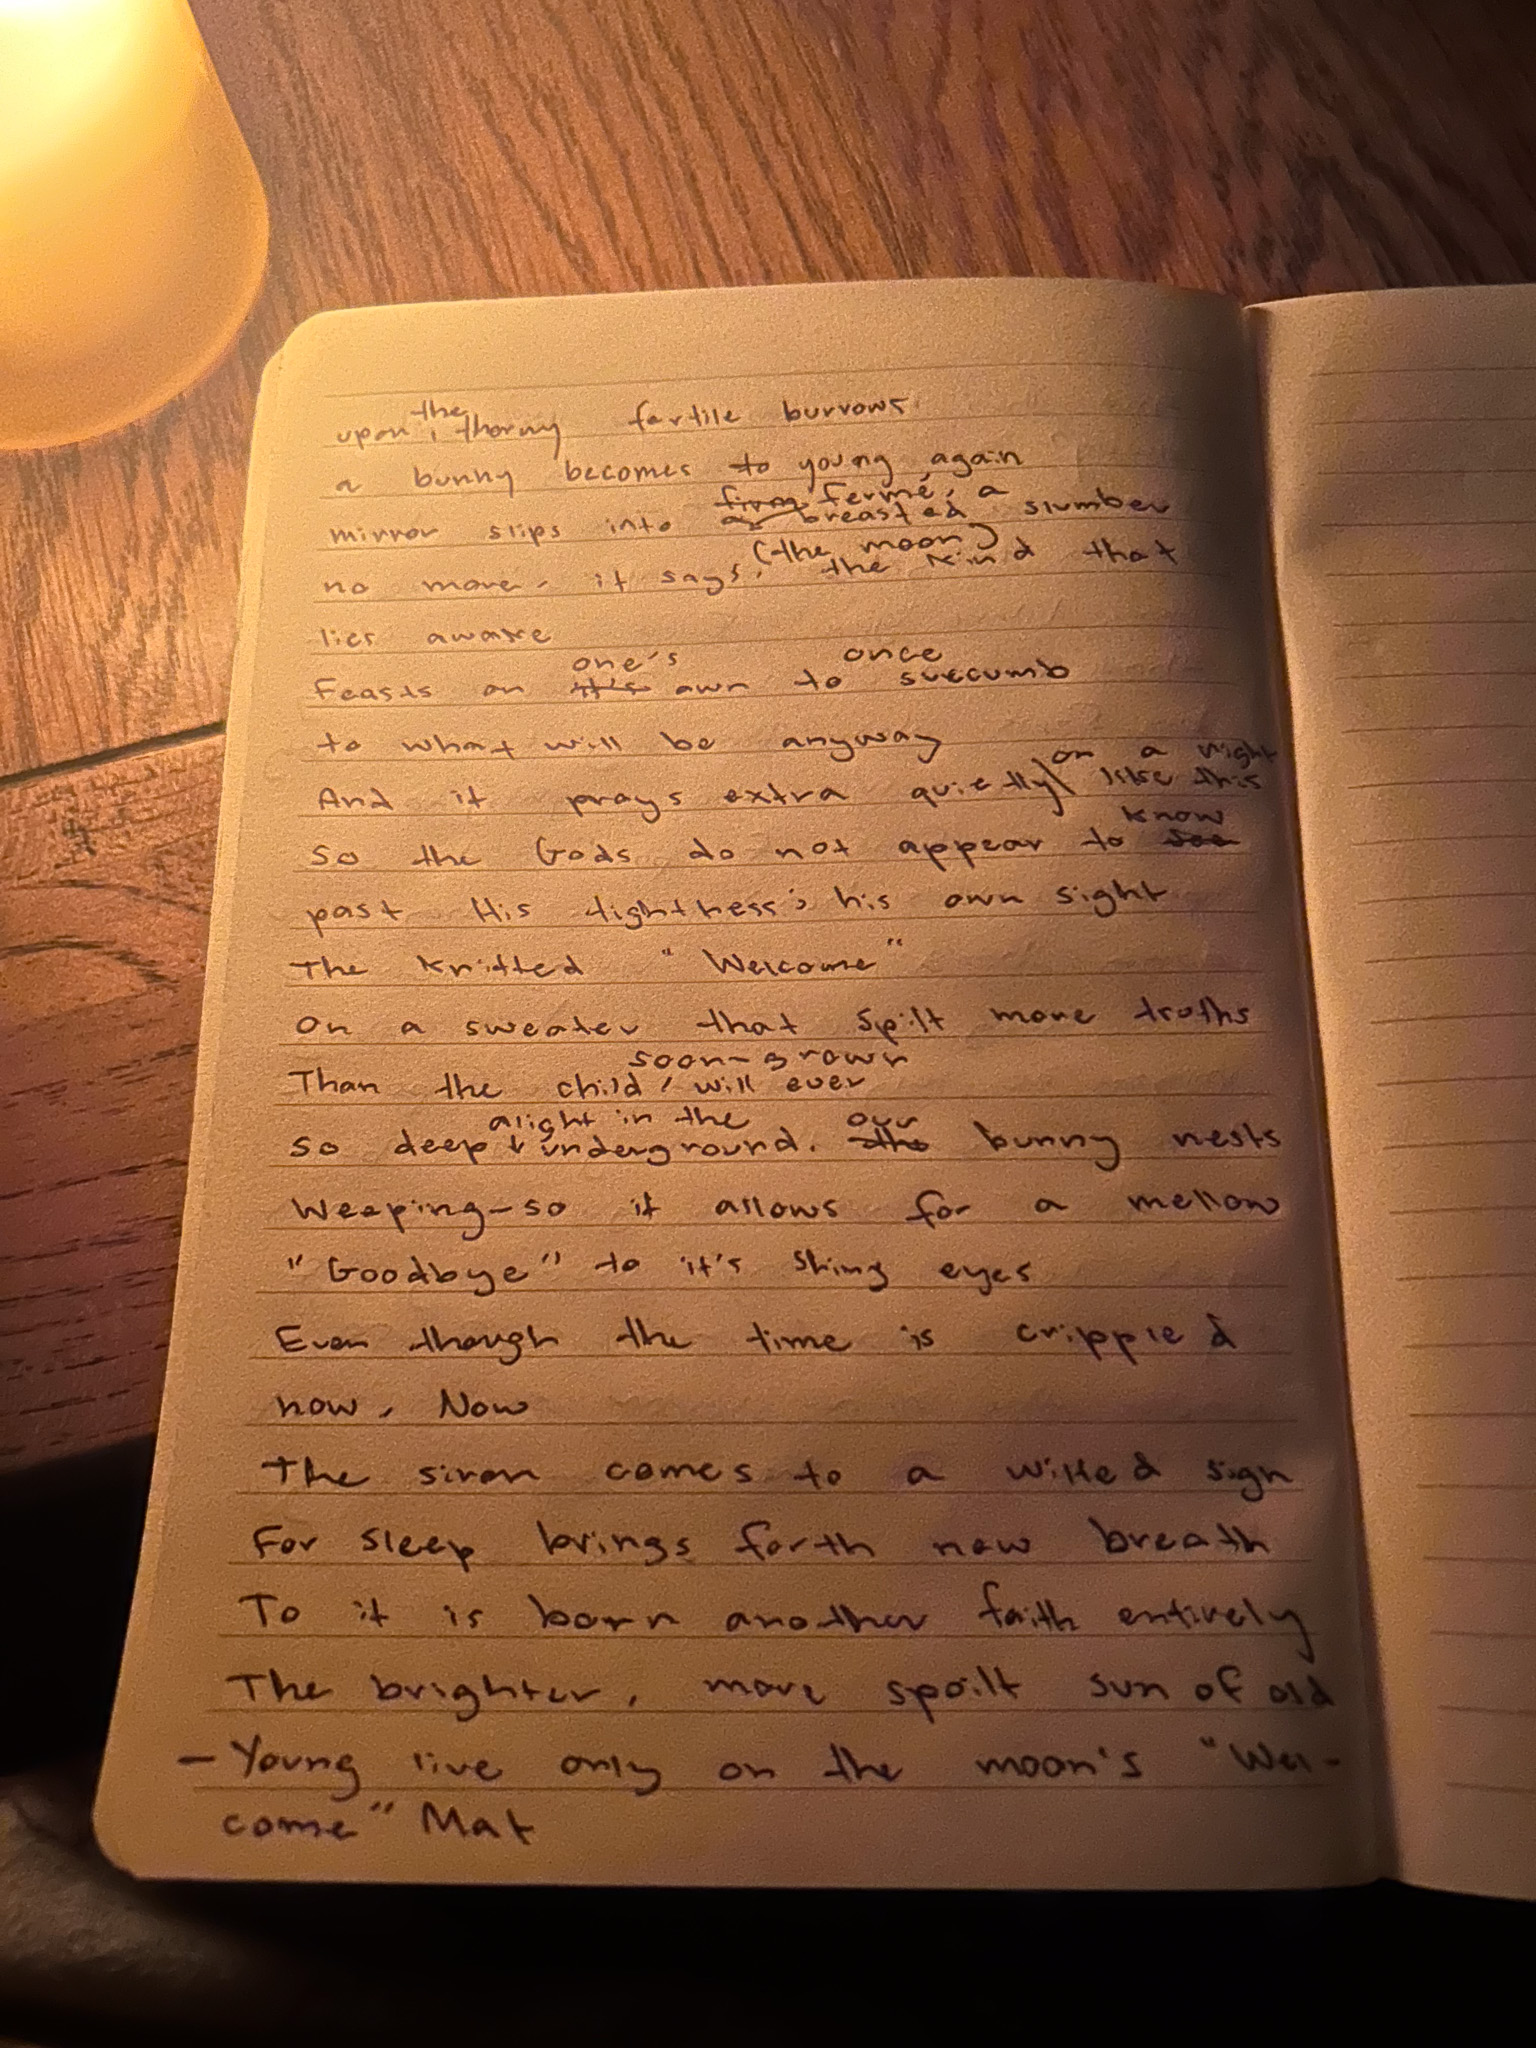 upon the thorny fertile burrows
a bunny becomes to young again
mirror slips into fermé, a breasted slumber
no more, it says, (the moon) the kind that
lies awake
Feasts on one's own to once succumb
to what will be anyway
And it prays extra quietly on a night like this
So the Gods do not appear to know
past His tightness; his own sight
The knitted "Welcome"
On a sweater that spilt more truths
Than the child, soon-grown will ever
so deep alight in the underground. our bunny nests
Weeping-so it allows for a mellow
"Goodbye" to it's sting eyes
Even though the time is crippled
now, Now
The siren comes to a wilted sign
For sleep brings forth new breath
To it is born another faith entirely
The brighter, more spoilt sun of old
- Young live only on the moon's "Wel-
come" Mat